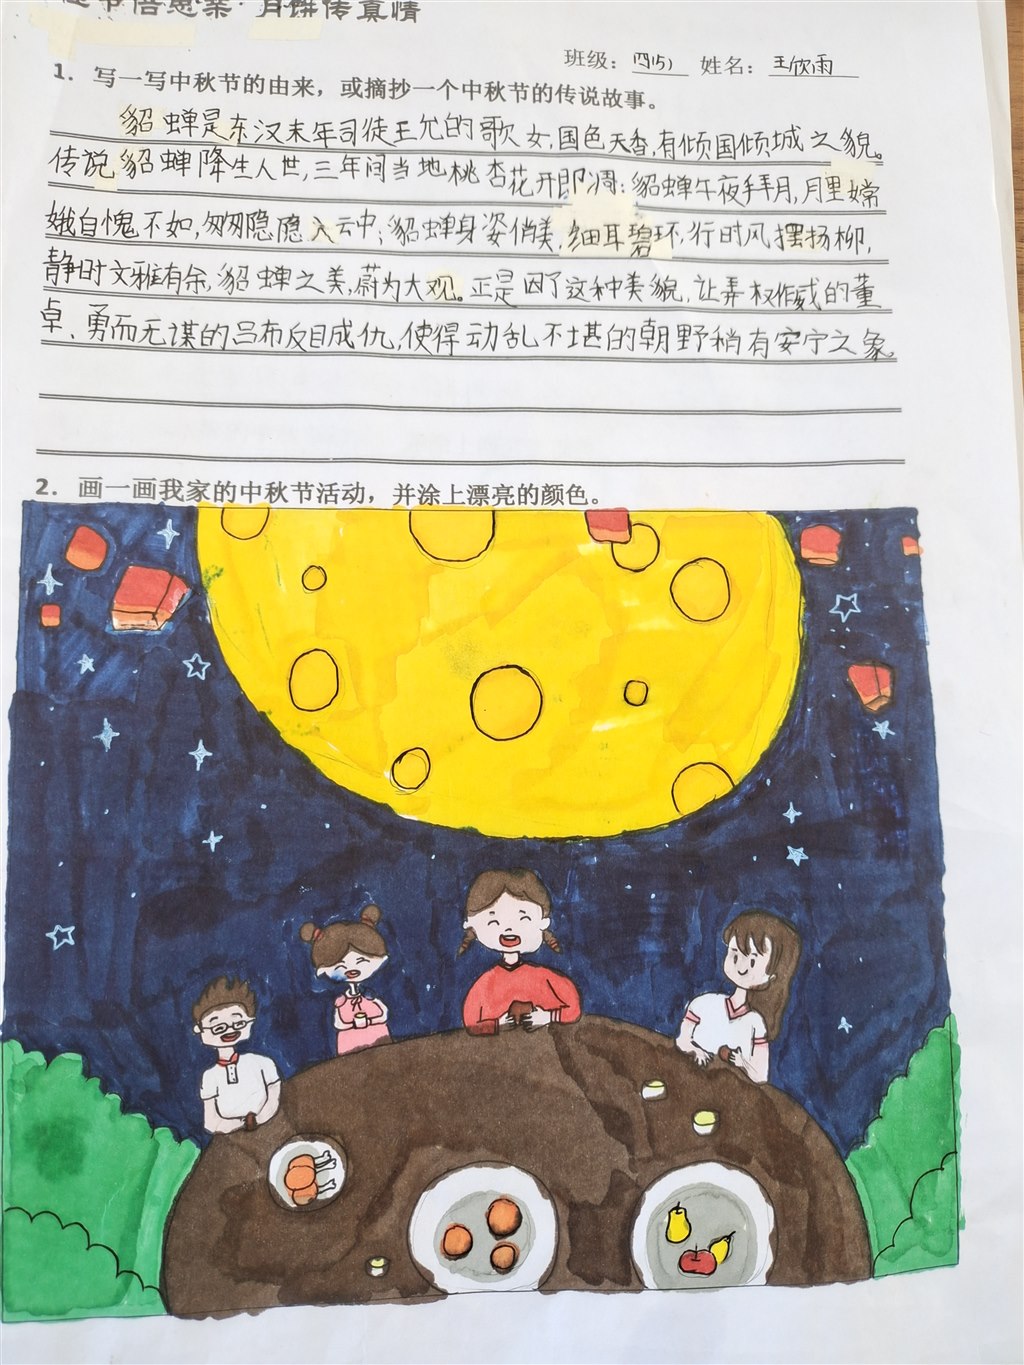 节倍思亲·月饼传真情
班级：四(5) 姓名：王欣雨
1. 写一写中秋节的由来，或摘抄一个中秋节的传说故事。
貂蝉是东汉末年司徒王允的歌女,国色天香,有倾国倾城之貌。
传说貂蝉降生人世,三年间当地桃杏花开即凋;貂蝉午夜拜月,月里嫦
娥自愧不如,匆匆隐隐入云中;貂蝉身姿俏美,细耳碧环,行时风摆扬柳,
静时文雅有余,貂蝉之美,蔚为大观。正是因了这种美貌,让弄权作威的董
卓、勇而无谋的吕布反目成仇,使得动乱不堪的朝野稍有安宁之象。
2. 画一画我家的中秋节活动，并涂上漂亮的颜色。